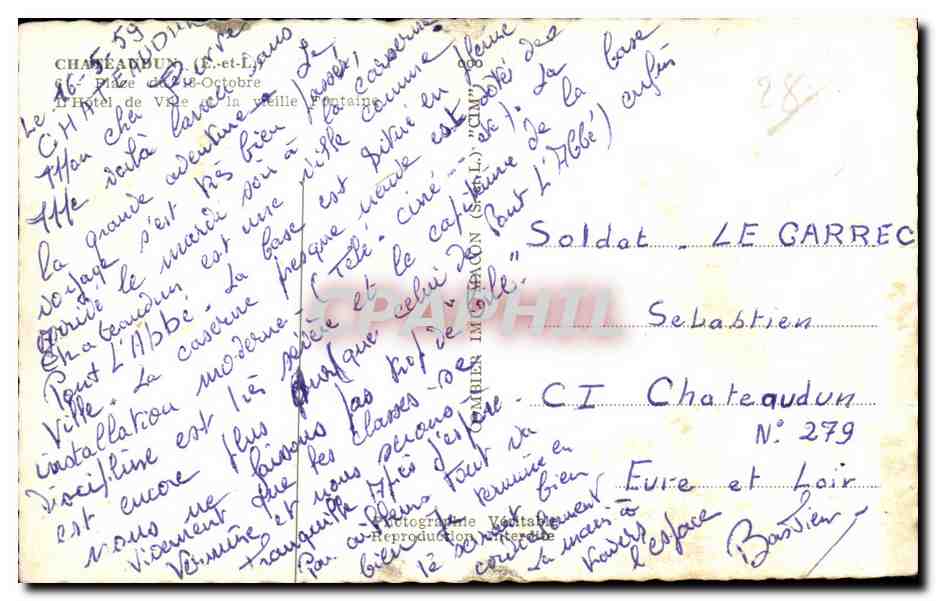 CHATEAUDUN (E.-et-L.)
Place du 18-Octobre
L'Hôtel de Ville et la vieille Fontaine
Le 16-5-59
CHATEAUDUN
Mon cher Pierre
Me voilà lancé dans
la grande aventure - Le
voyage s'est très bien passé,
arrivé le mardi soir à la caserne.
Chateaudun est une ville comme
Pont L'Abbé - La base est situé en pleine
Ville - La caserne presque neuve est dotée des
installation moderne - (Télé - ciné - etc). La
discipline est très sévère et le capitaine de la base
est encore plus que celui de Pont L'Abbé) enfin
nous ne faisons pas trop de "bile"
Vivement que les classes se
termine et nous serons
tranquille après j'espère -
Par ailleurs tout va
bien je termine en
te serrant bien
cordialement
La main à
travers
l'espace
Bastien
Soldat - LE GARREC
Sébastien
CI Chateaudun
N° 279
Eure et Loir
28
COMBIER IMP. MACON (S.-et-L.) "CIM"
Photographie Véritable
Reproduction Interdite
CPAPHIL